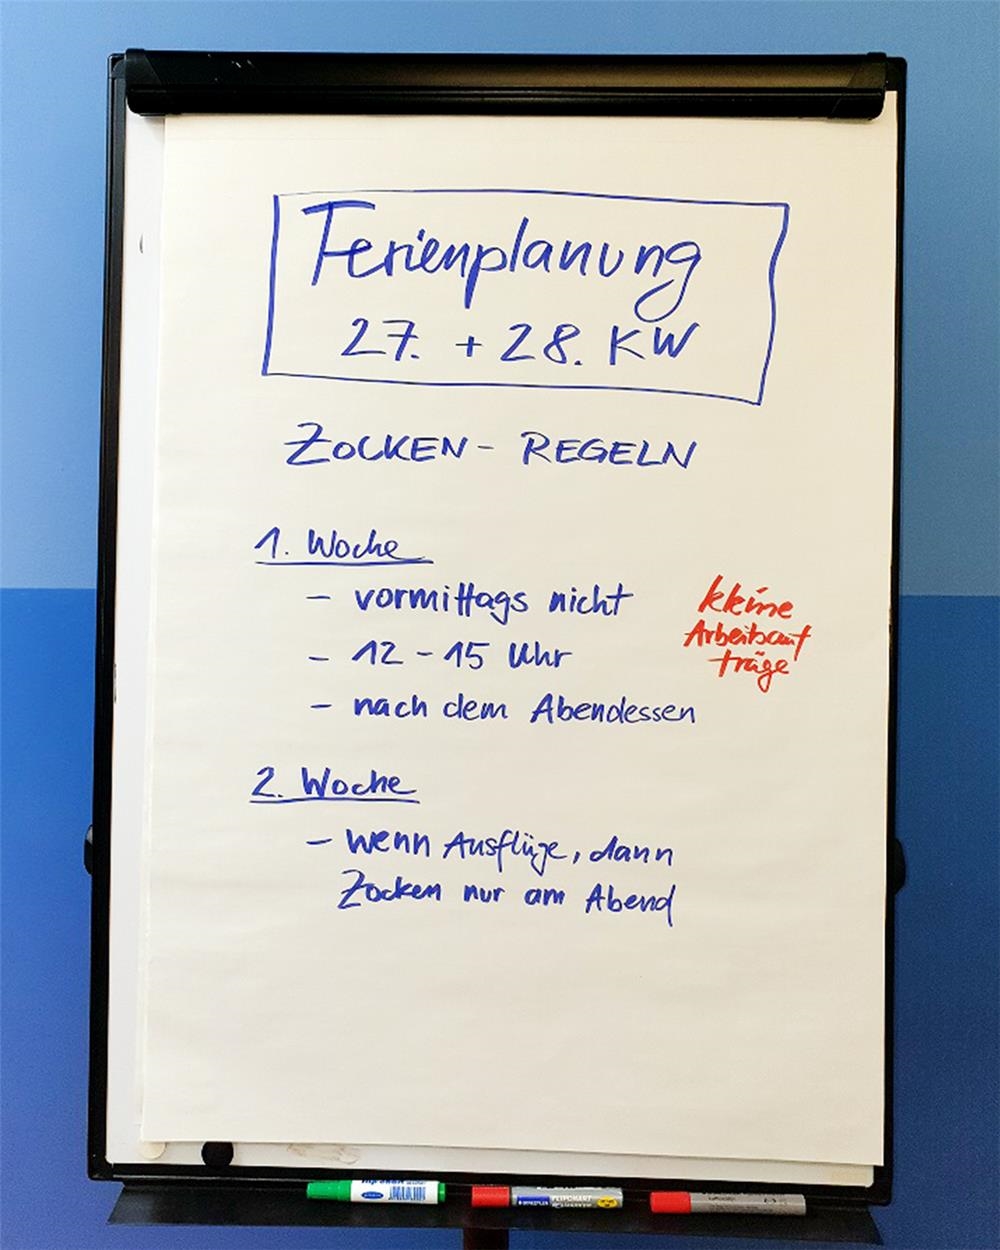 Ferienplanung
27. + 28. KW
ZOCKEN - REGELN
1. Woche
- vormittags nicht
- 12 - 15 Uhr
- nach dem Abendessen
kleine
Arbeitsauf
träge
2. Woche
- wenn Ausflüge, dann
Zocken nur am Abend
STAEDTLER FLIPCHART